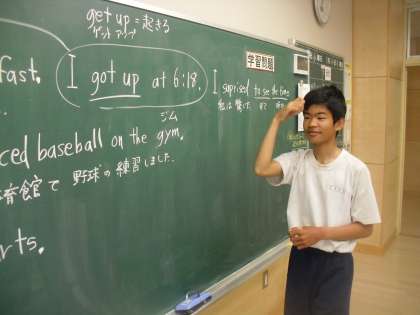 get up = 起きる
ゲット アップ
学習問題
fast.
I got up at 6:18.
I suprised to see the time
私は驚いた
ced baseball on the gym.
ジム
育館で 野球の練習しました.
rts.